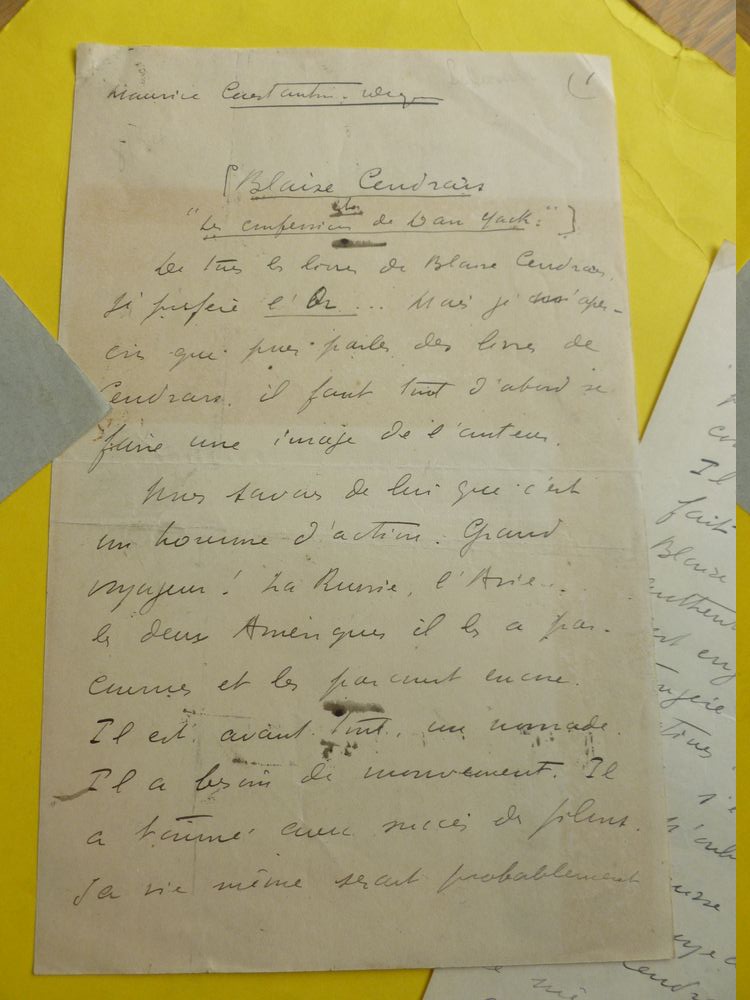 Maurice Constantin-Weyer
(1
[Blaise Cendrars
"Les confessions de Dan Yack."]
De tous les livres de Blaise Cendrars,
je préfère l'Or... Mais je m'aper-
çois que pour parler des livres de
Cendrars, il faut tout d'abord se
faire une image de l'auteur.
Nous savons de lui que c'est
un homme d'action. Grand
voyageur! La Russie, l'Asie...
les deux Amériques il les a par-
courues et les parcourt encore.
Il est avant tout, un nomade.
Il a besoin de mouvement. Il
a tourné avec succès des films.
Sa vie même serait probablement
Il
fait
Blaise